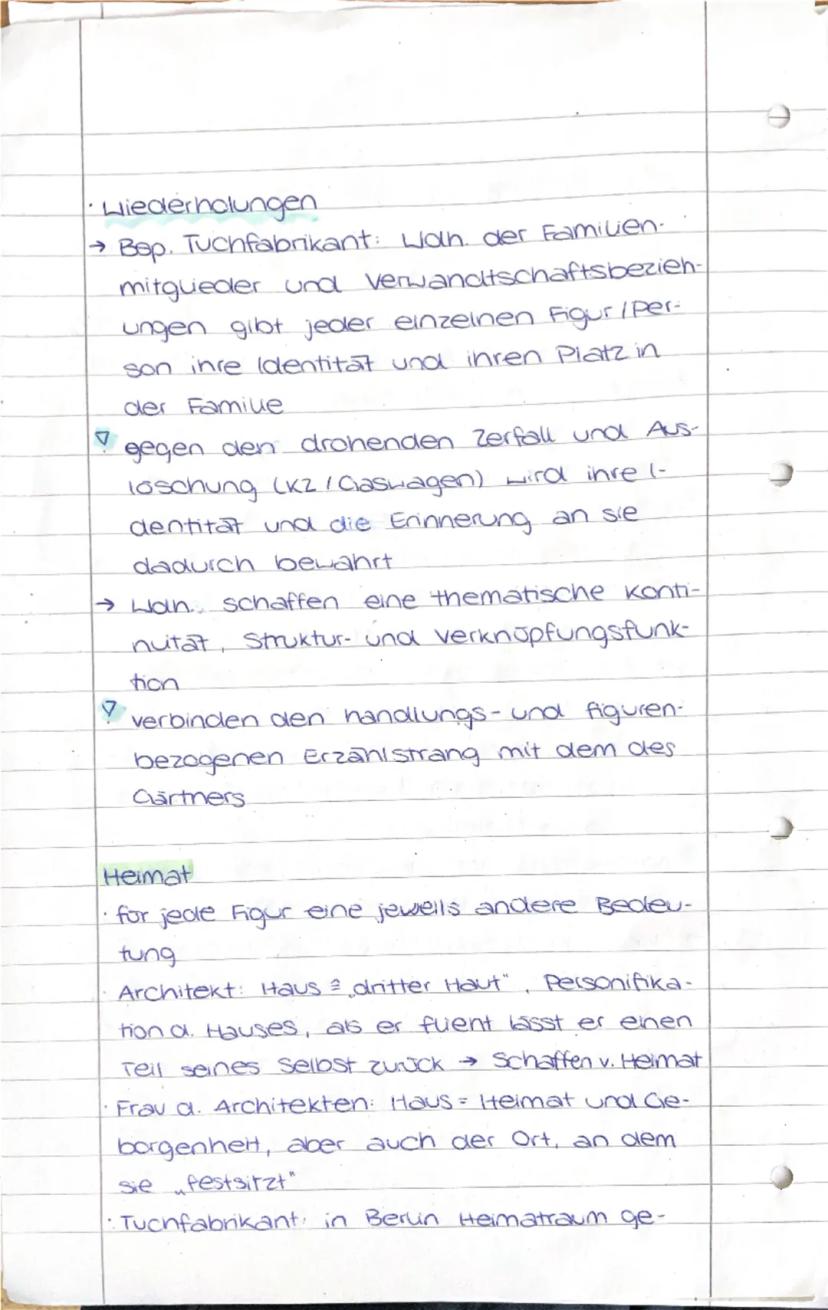 · Wiederholungen
→ Bsp. Tuchfabrikant: Wdh. der Familien-
mitglieder und Verwandtschaftsbezieh-
ungen gibt jeder einzelnen Figur / Per-
son ihre Identität und ihren Platz in
der Familie
▽ gegen den drohenden Zerfall und Aus-
löschung (KZ / Gaswagen) wird ihre I-
dentität und die Erinnerung an sie
dadurch bewahrt
→ Wdh. schaffen eine thematische Konti-
nutät, Struktur- und Verknüpfungsfunk-
tion
▽ verbinden den handlungs- und figuren-
bezogenen Erzählstrang mit dem des
Gärtners
Heimat
· für jede Figur eine jeweils andere Bedeu-
tung
· Architekt: Haus ≙ „dritter Haut", Personifika-
tion d. Hauses, als er flieht lässt er einen
Teil seines Selbst zurück → Schaffen v. Heimat
· Frau d. Architekten: Haus = Heimat und Ge-
borgenheit, aber auch der Ort, an dem
sie „festsitzt"
· Tuchfabrikant: in Berlin Heimatraum ge-